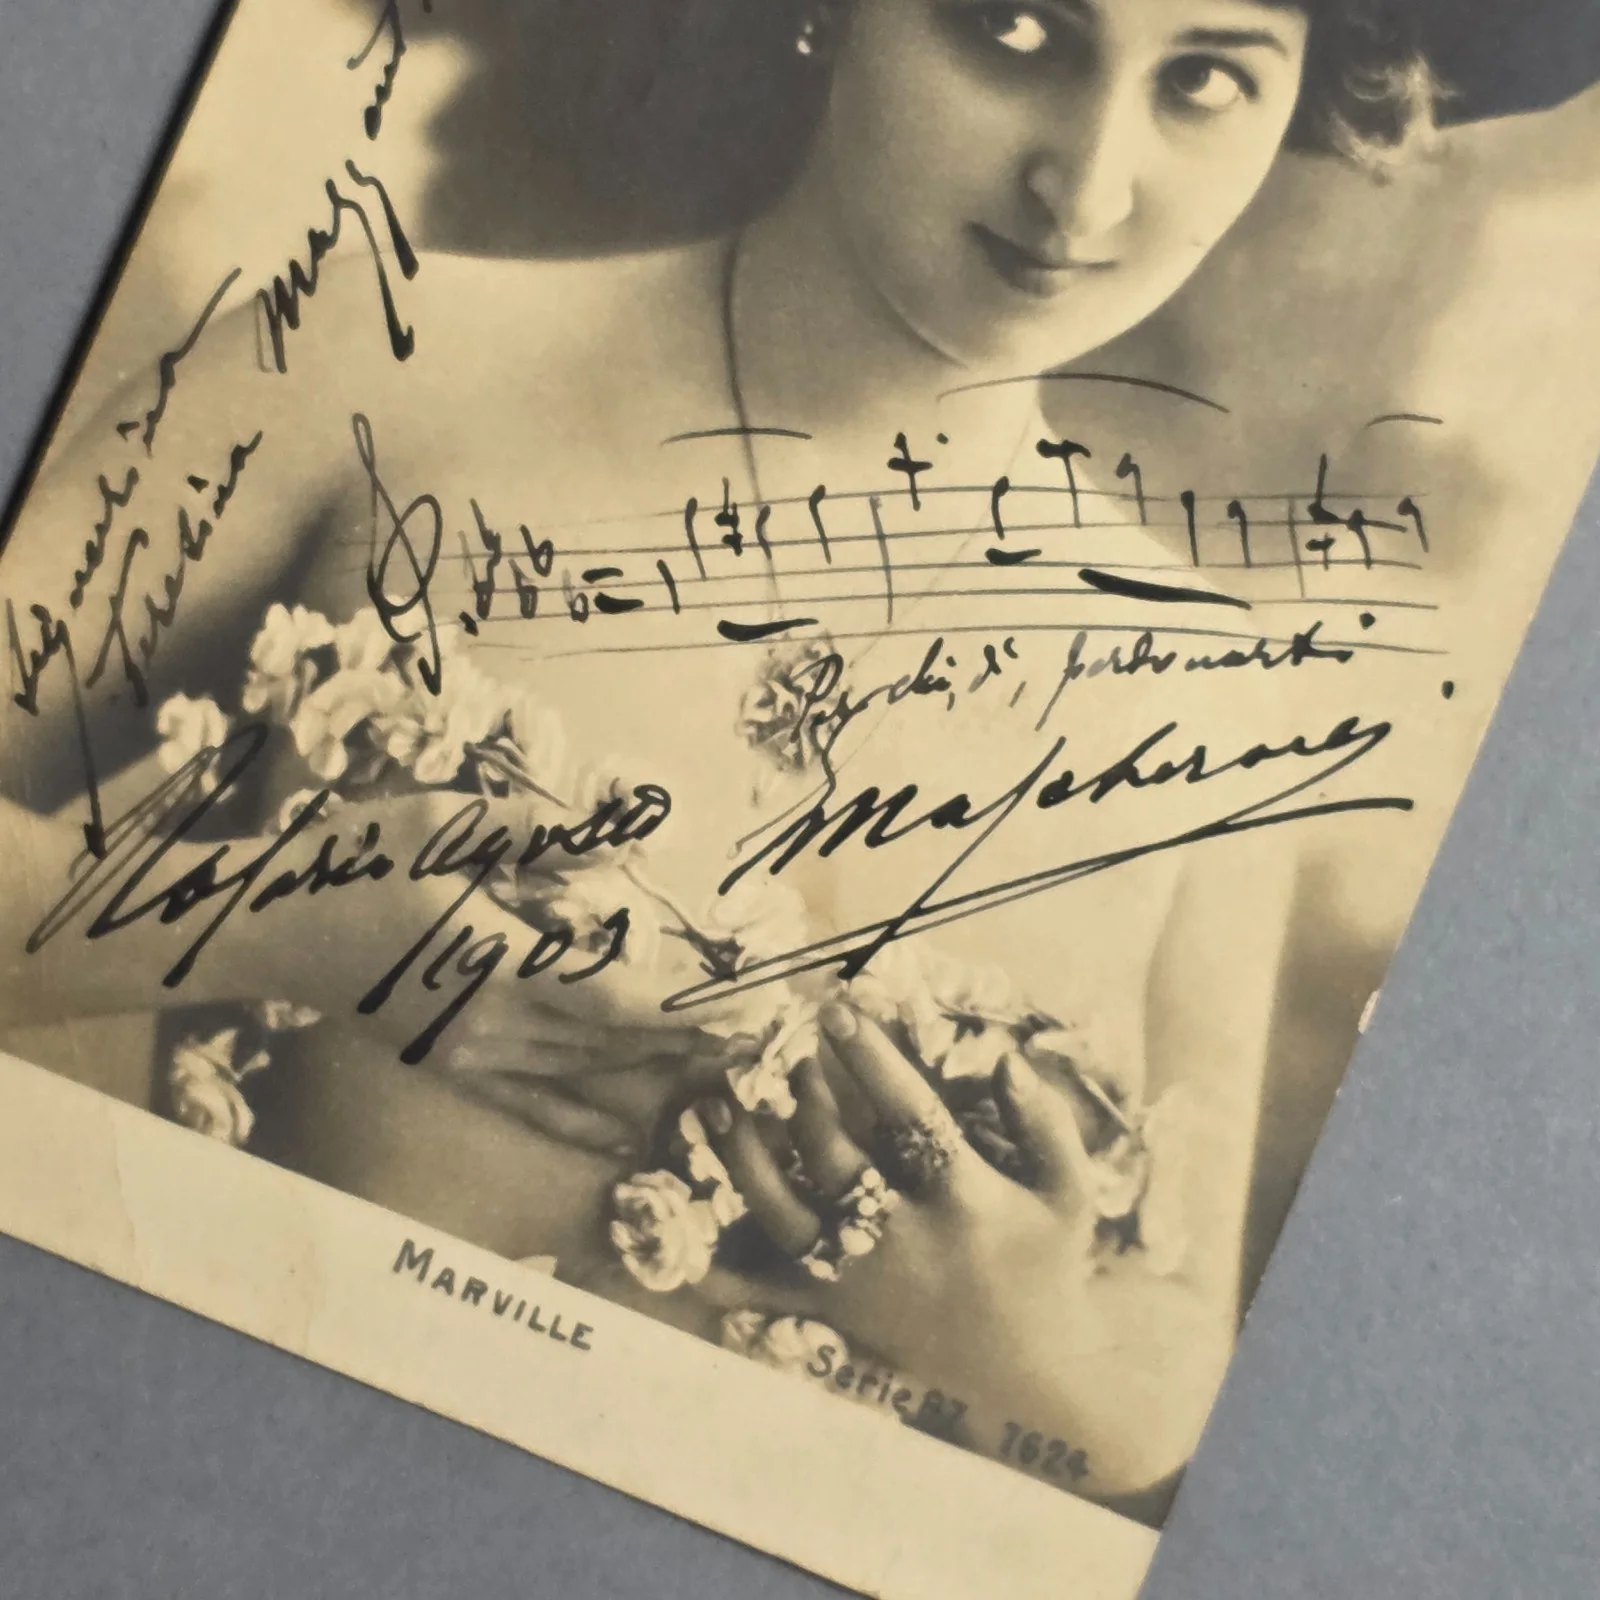 Signorina
Teresina
Perchè, dì, perdonarti
Mascheroni
Agosto
1903
MARVILLE
Serie 87 7624